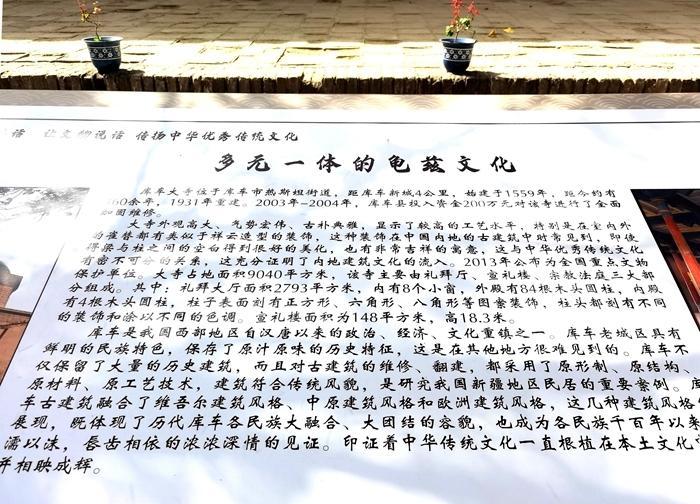 话 让文物说话 传扬中华优秀传统文化
多元一体的龟兹文化
库车大寺位于库车市热斯坦街道，距库车新城4公里，始建于1559年，距今约有
60余年，1931年重建。2003年-2004年，库车县投入资金200万元对该寺进行了全面
加固维修。
大寺外观高大、气势宏伟、古朴典雅，显示了较高的工艺水平，特别是在室内外
的雀替都有类似于祥云造型的装饰，这种装饰在中国内地的古建筑中时常见到，即使
得梁与柱之间的空白得到很好的美化，也有非常吉祥的寓意，这与中华优秀传统文化
有密不可分的关系，这充分证明了内地建筑文化的流入。2013年公布为全国重点文物
保护单位。大寺占地面积9040平方米，该寺主要由礼拜厅、宣礼楼、宗教法庭三大部
分组成。其中：礼拜大厅面积2793平方米，内有8个小窗，外殿有84根木头圆柱，内殿
有4根木头圆柱，柱子表面刻有正方形、六角形、八角形等图案装饰，柱头都刻有不同
的装饰和涂以不同的色调。宣礼楼面积为148平方米，高18.3米。
库车是我国西部地区自汉唐以来的政治、经济、文化重镇之一。库车老城区具有
鲜明的民族特色，保存了原汁原味的历史特征，这是在其他地方很难见到的。库车不
仅保留了大量的历史建筑，而且对古建筑的维修、翻建，都采用了原形制、原结构、
原材料、原工艺技术，建筑符合传统风貌，是研究我国新疆地区民居的重要案例。库
车古建筑融合了维吾尔建筑风格、中原建筑风格和欧洲建筑风格，这几种建筑风格
展现，既体现了历代库车各民族大融合、大团结的容貌，也成为各民族千百年以来
濡以沫，唇齿相依的浓浓深情的见证。印证着中华传统文化一直根植在本土文化
并相映成辉。